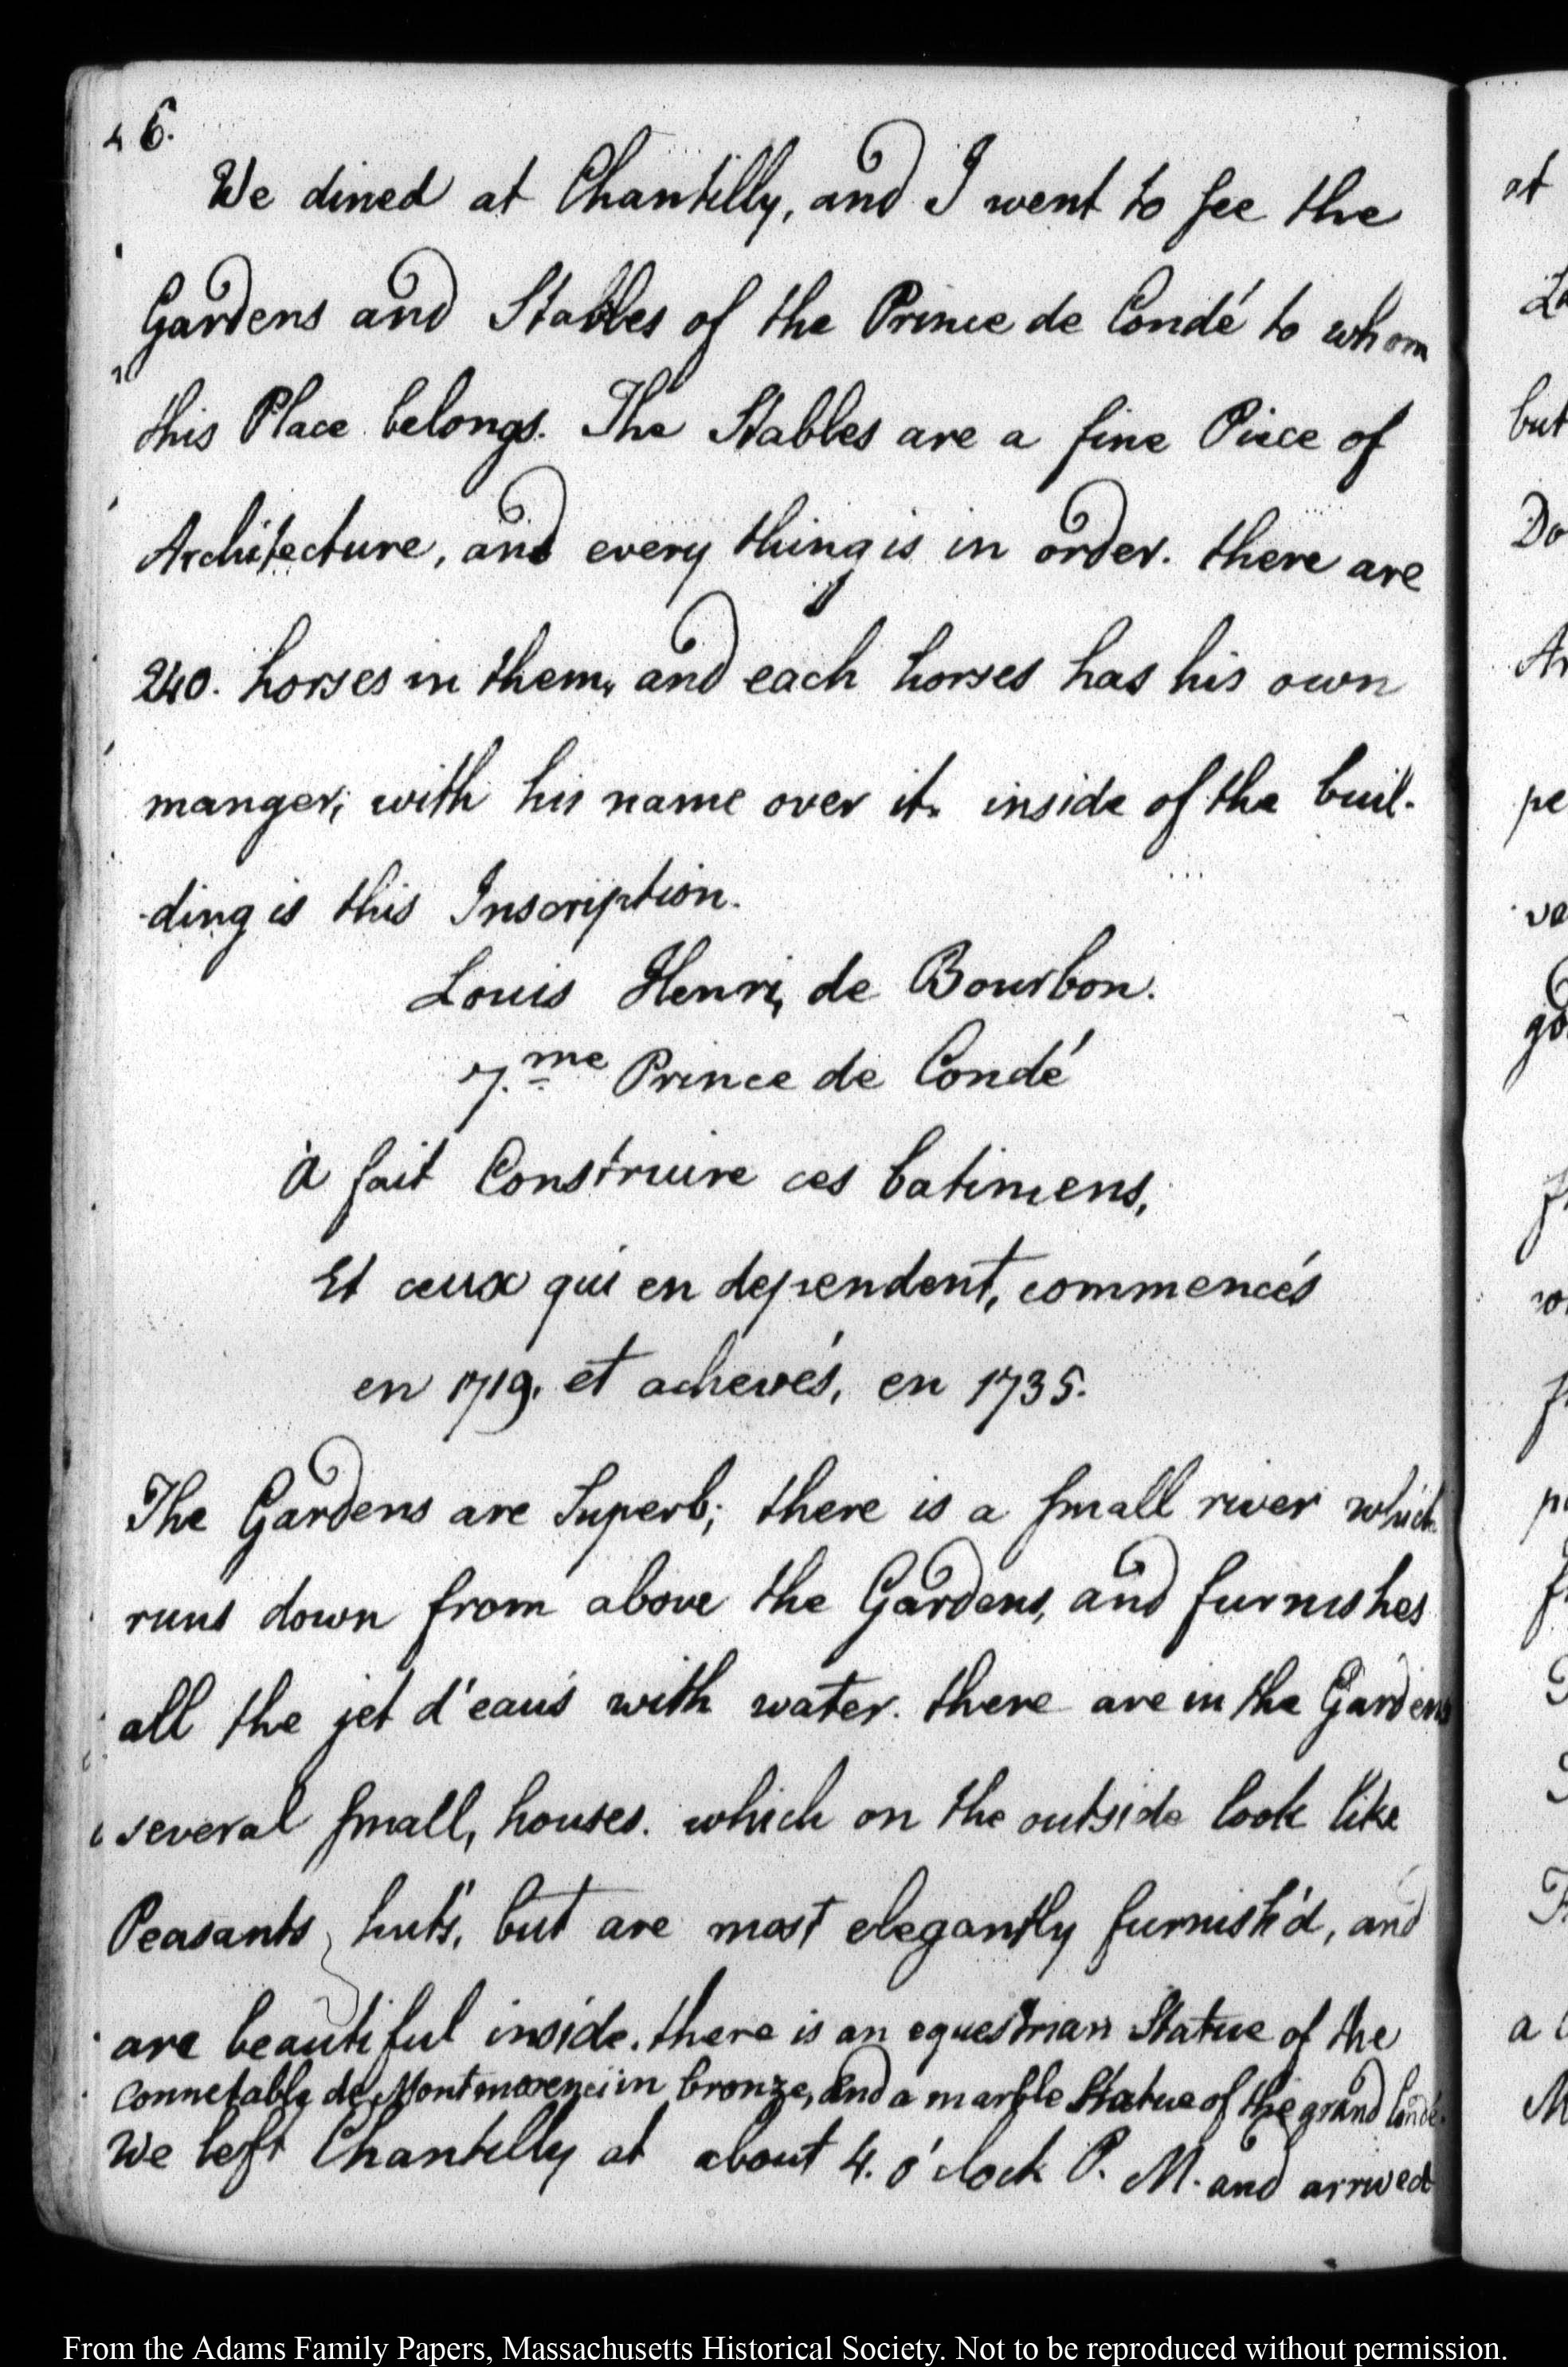 46.
We dined at Chantilly, and I went to see the
Gardens and Stables of the Prince de Condé to whom
this Place belongs. The Stables are a fine Piece of
Architecture, and every thing is in order. there are
240. horses in them, and each horses has his own
manger; with his name over it. inside of the buil-
-ding is this Inscription.
Louis Henri, de Bourbon.
7.me Prince de Condé
à fait Construire ces batimens,
Et ceux qui en dependent, commencés
en 1719. et achevés, en 1735.
The Gardens are Superb; there is a small river which
runs down from above the Gardens, and furnishes
all the jet d'eau's with water. there are in the Gardens
several small, houses. which on the outside look like
Peasants, huts, but are most elegantly furnish'd, and
are beautiful inside. there is an equestrian Statue of the
Connetable de Montmorenci in bronze, and a marble Statue of the grand Condé.
We left Chantilly at about 4. o'clock P. M. and arrived
at
but
Do
pe
ve
go
a
M
From the Adams Family Papers, Massachusetts Historical Society. Not to be reproduced without permission.